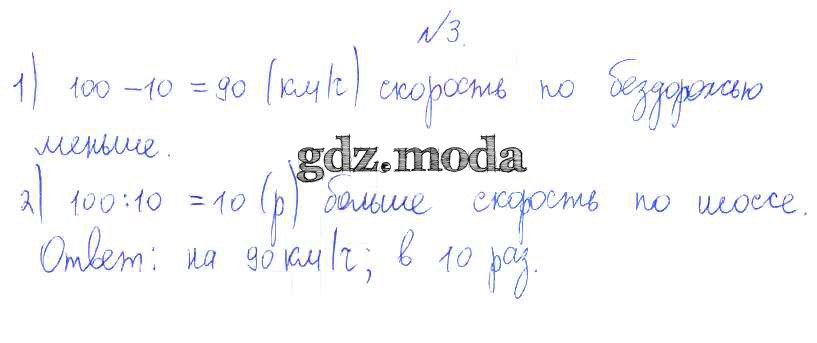 №3.
1) 100 - 10 = 90 (км/ч) скорость по бездорожью
меньше.
gdz.moda
2) 100:10 = 10 (р) больше скорость по шоссе.
Ответ: на 90 км/ч; в 10 раз.